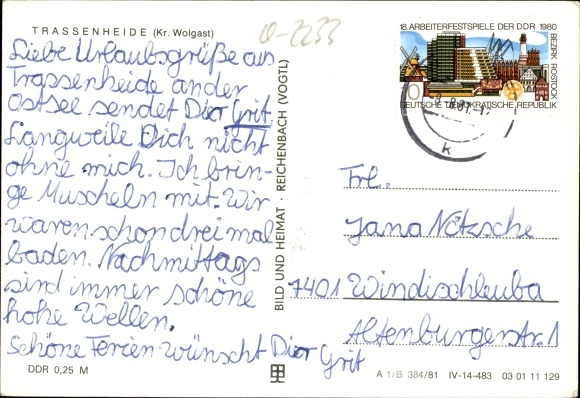 TRASSENHEIDE (Kr. Wolgast)
O-2233
Liebe Urlaubsgrüße aus
Trassenheide an der
Ostsee sendet Dir Grit.
Langweile Dich nicht
ohne mich. Ich brin-
ge Muscheln mit. Wir
waren schon dreimal
baden. Nachmittags
sind immer schöne
hohe Wellen.
Schöne Ferien wünscht Dir
Grit
DDR 0,25 M
BILD UND HEIMAT · REICHENBACH (VOGTL)
18. ARBEITERFESTSPIELE DER DDR 1980
BEZIRK ROSTOCK
10
DEUTSCHE DEMOKRATISCHE REPUBLIK
k
Frl.
Jana Nötzsche
7401 Windischleuba
Altenburgerstr. 1
A 1/B 384/81 IV-14-483 03 01 11 129